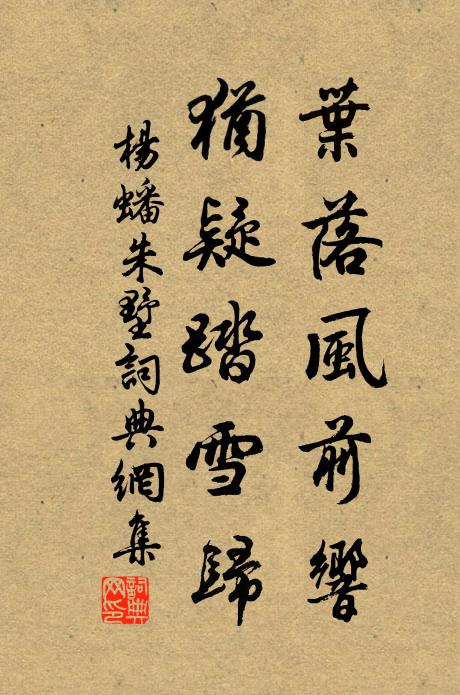 葉落風前響
猶疑踏雪歸
楊蟠朱墅詞典網集
詞典網印